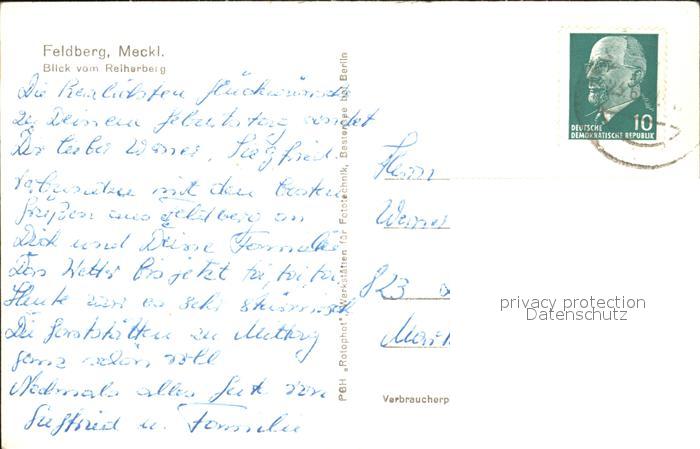 Feldberg, Meckl.
Blick vom Reiherberg
Die herzlichsten Glückwünsche
zu Deinem Geburtstag sendet
Dir lieber Werner, Siegfried.
Verbunden mit den besten
Grüßen aus Feldberg an
Dich und Deine Familie
Das Wetter bis jetzt toi, toi, toi
Heute war es sehr stürmisch
Die Gaststätten zu Mittag
ganz schön voll
Nochmals alles Gute von
Siegfried u. Familie
PBH „Rotophot“ Werkstätten für Fototechnik, Bestensee bei Berlin
DEUTSCHE
DEMOKRATISCHE REPUBLIK 10
Herrn
Werner
823
Verbraucherp
privacy protection
Datenschutz